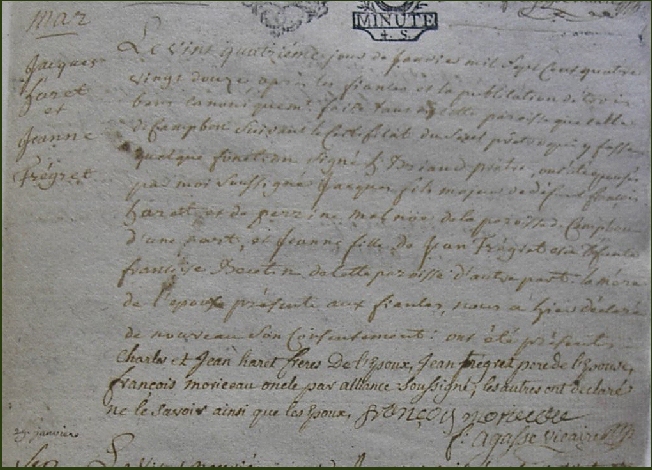 MINUTE
4. S.
mar
Jacques
haret
et
Jeanne
Frégret
Le vint quatrieme jour de janvier mil sept cens quatre
vingt douze après les fiancés et la publication de trois
bans canoniquem. faite tant de cette paroisse que celle
de Campbon suivant le certificat du sieur prêtre qui y fasse
quelque fonction signé h Briand prêtre, ont été épousés
par moi soussigné Jacques fils majeur de défunt francois
haret, et de perrine de la paroisse de Campbon
d'une part, et Jeanne fille de Jean Frégret et de
françoise de cette paroisse d'autre part. la mère
de l'epoux présente aux fiances, nous a hier déclaré
de nouveau son Consentement: ont été présents
Charles et Jean haret freres De l'Epoux, Jean fregret pere de l'Epouse,
françois moriceau oncle par alliance soussigné, les autres ont declaré
ne le savoir ainsi que les Epoux. françois moriceau
f. agasse vicaire
janvier